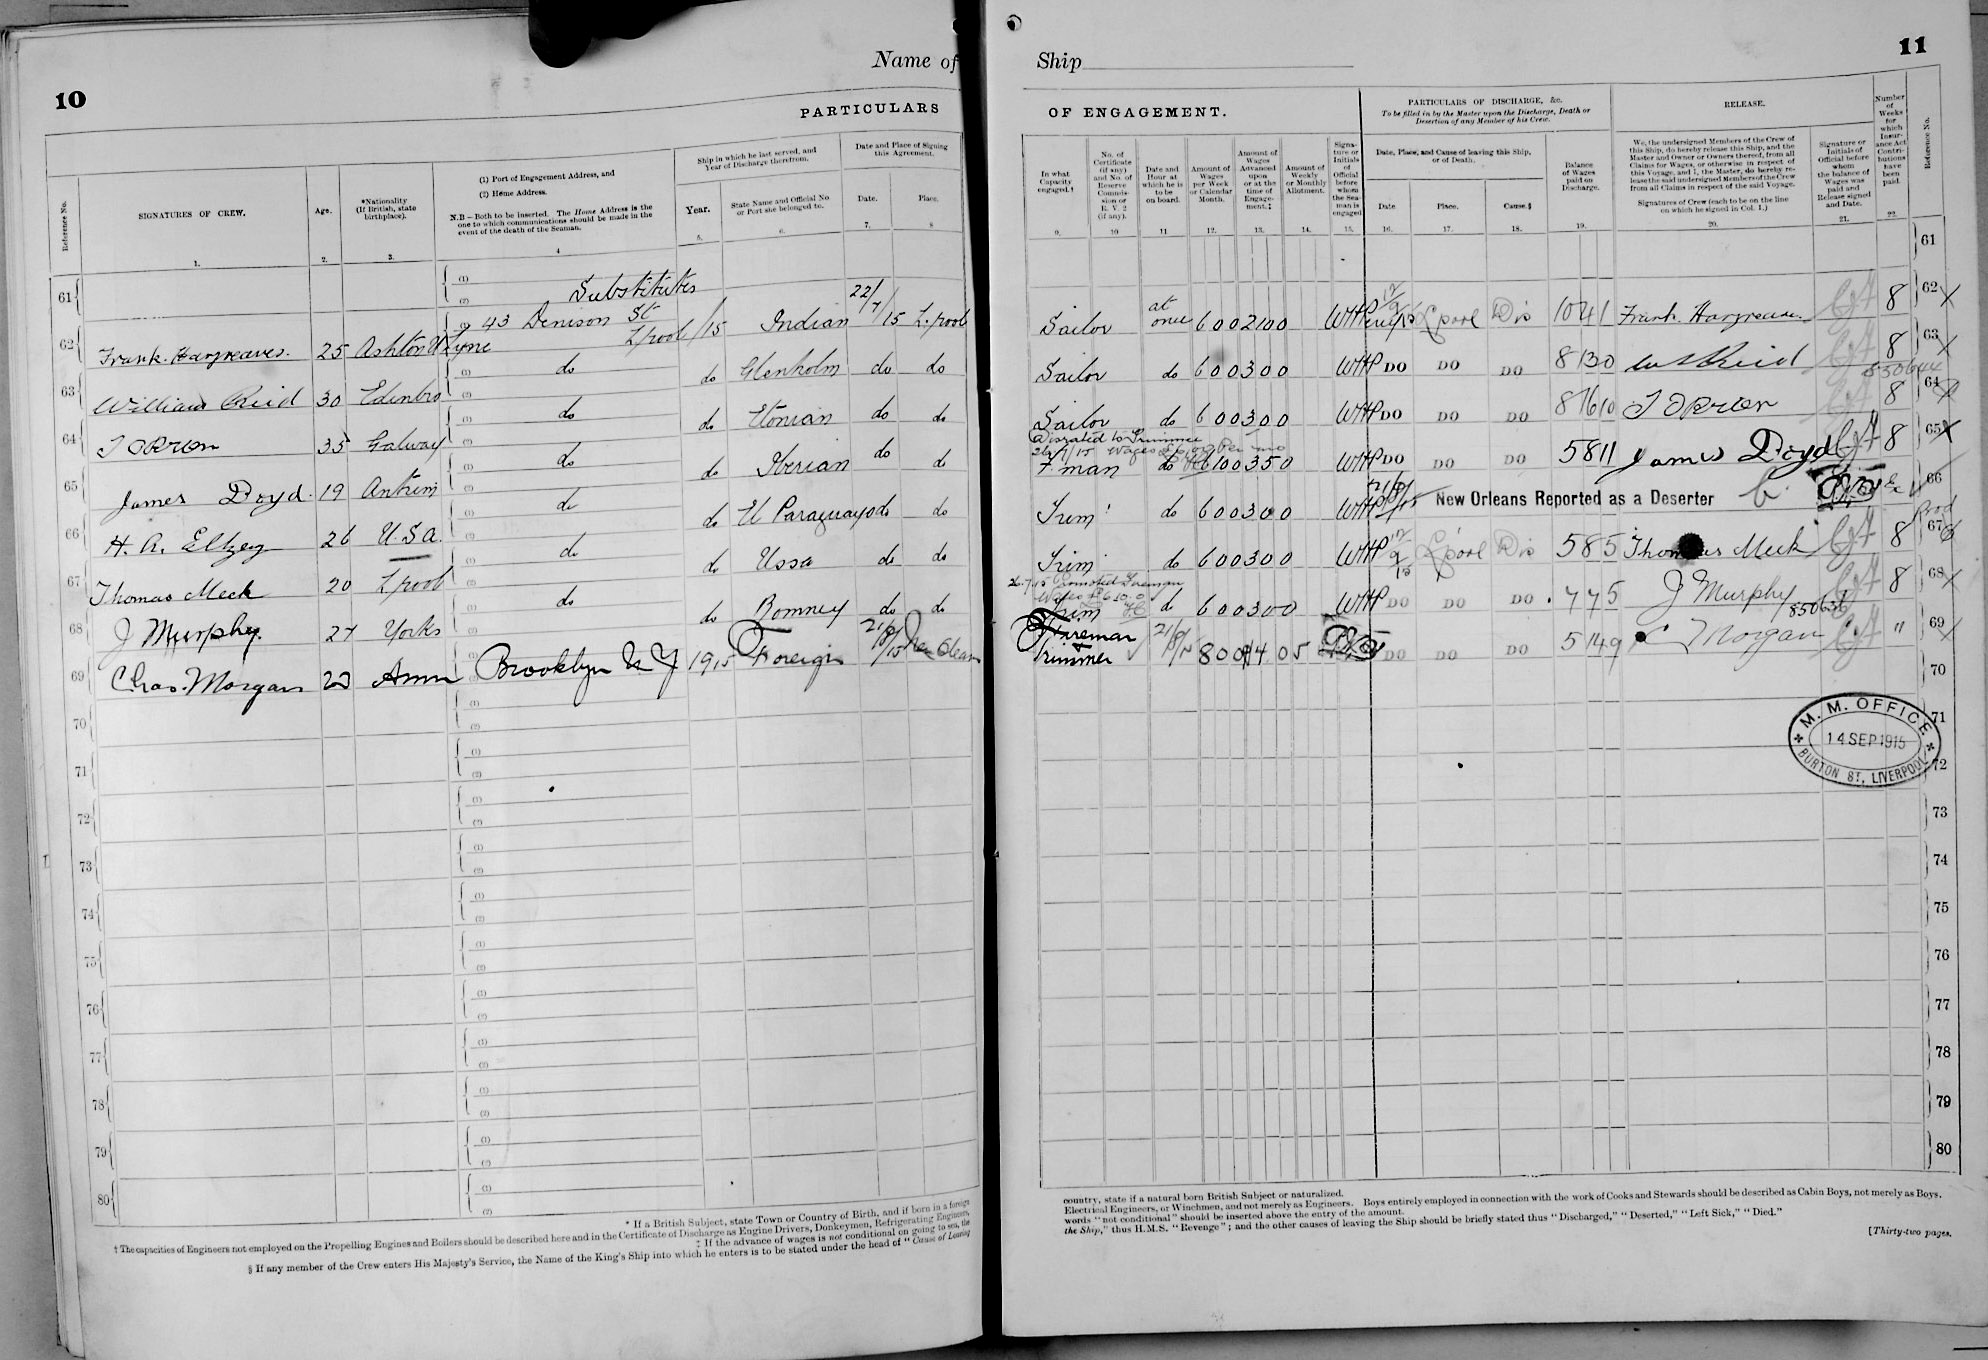 10
Name of
PARTICULARS
Reference No.
SIGNATURES OF CREW.
Age.
*Nationality (If British, state birthplace).
(1) Port of Engagement Address, and
(2) Home Address.
N.B – Both to be inserted. The Home Address is the one to which communications should be made in the event of the death of the Seaman.
Ship in which he last served, and Year of Discharge therefrom.
Year.
State Name and Official No or Port she belonged to.
Date and Place of Signing this Agreement.
Date.
Place.
1. 2. 3. 4 5. 6. 7. 8
61 Substitutes
62 Frank Hargreaves. 25 Ashton U Lyne 43 Denison St L'pool /15 Indian 22/7/15 L.pool
63 William Reid 30 Edinbro do do Glenholm do do
64 T OBrien 35 Galway do do Etonian do do
65 James Doyd. 19 Antrim do do Iberian do do
66 H. A. Eltzey 26 U.S.A. do do U Paraguayo do do
67 Thomas Meek 20 L'pool do do Ussa do do
68 J Murphy. 27 Yorks do do Romney do do
69 Chas. Morgan Amn Brooklyn N Y 1915 Foreign 21/8/15 New Orleans
70
71
72
73
74
75
76
77
78
79
80
* If a British Subject, state Town or Country of Birth, and if born in a foreign
† The capacities of Engineers not employed on the Propelling Engines and Boilers should be described here and in the Certificate of Discharge as Engine Drivers, Donkeymen, Refrigerating Engineers,
‡ If the advance of wages is not conditional on going to sea, the
§ If any member of the Crew enters His Majesty's Service, the Name of the King's Ship into which he enters is to be stated under the head of "Cause of Leaving
Ship
11
OF ENGAGEMENT.
PARTICULARS OF DISCHARGE, &c.
To be filled in by the Master upon the Discharge, Death or Desertion of any Member of his Crew.
RELEASE.
Number of Weeks for which Insurance Act Contributions have been paid.
Reference No.
In what Capacity engaged.†
No. of Certificate (if any) and No. of Reserve Commission or R. V. 2 (if any).
Date and Hour at which he is to be on board.
Amount of Wages per Week or Calendar Month.
Amount of Wages Advanced upon or at the time of Engagement.‡
Amount of Weekly or Monthly Allotment.
Signature or Initials of Official before whom the Seaman is engaged
Date, Place, and Cause of leaving this Ship, or of Death.
Date
Place.
Cause.§
Balance of Wages paid on Discharge.
We, the undersigned Members of the Crew of this Ship, do hereby release this Ship, and the Master and Owner or Owners thereof, from all Claims for Wages, or otherwise in respect of this Voyage, and I, the Master, do hereby release the said undersigned Members of the Crew from all Claims in respect of the said Voyage.
Signatures of Crew (each to be on the line on which he signed in Col. 1.)
Signature or Initials of Official before whom the balance of Wages was paid and Release signed and Date.
9. 10 11 12. 13. 14. 15. 16. 17. 18. 19. 20. 21. 22.
61
Sailor at once 6 0 0 2 10 0 WHP 12/9/15 L'pool Dis 10 4 1 Frank Hargreaves 8 62
Sailor do 6 0 0 3 0 0 WHP DO DO DO 8 13 0 Wm Reid 8 63
850644
Sailor do 6 0 0 3 0 0 WHP DO DO DO 8 16 10 T OBrien 8 64
Disrated to Trimmer
F'man do 6 10 0 3 5 0 WHP DO DO DO 5 8 11 James Doyd 8 65
Trim do 6 0 0 3 0 0 WHP New Orleans Reported as a Deserter 66
Trim do 6 0 0 3 0 0 WHP 12/9/15 L'pool Dis 5 8 5 Thomas Meek 8 67
26.7.15 Promoted Fireman
Wages £6.10.0
Trim do 6 0 0 3 0 0 WHP DO DO DO 7 7 5 J Murphy 8 68
850636
Fireman
Trimmer 21/8/15 8 0 0 4 0 5 DO DO DO 5 14 9 C Morgan " 69
70
M. M. OFFICE
14 SEP 1915
BURTON ST, LIVERPOOL
71
72
73
74
75
76
77
78
79
80
country, state if a natural born British Subject or naturalized.
Electrical Engineers, or Winchmen, and not merely as Engineers. Boys entirely employed in connection with the work of Cooks and Stewards should be described as Cabin Boys, not merely as Boys.
words "not conditional" should be inserted above the entry of the amount.
the Ship," thus H.M.S. "Revenge"; and the other causes of leaving the Ship should be briefly stated thus "Discharged," "Deserted," "Left Sick," "Died."
[Thirty-two pages.